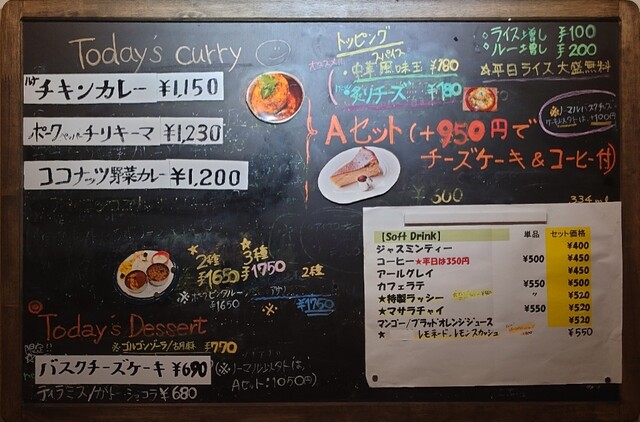 Today's curry
チキンカレー ¥1,150
ポークペッパーチリキーマ ¥1,230
ココナッツ野菜カレー ¥1,200
トッピング
スパイス
・中華風味玉 ¥180
炙りチーズ ¥180
○ライス増し ¥100
○ルー増し ¥200
☆平日ライス大盛無料
Aセット(+950円で
チーズケーキ&コーヒー付)
★2種 ¥1650
★3種 ¥1750
¥1650
アサリ
2種
※ ¥1750
Today's Dessert
※ゴルゴンゾーラ/古胡麻 ¥770
バスクチーズケーキ ¥690
Aセット:1050円)
ティラミス/ガトーショコラ ¥680
【Soft Drink】 単品 セット価格
ジャスミンティー ¥400
コーヒー★平日は350円 ¥500 ¥450
アールグレイ ¥450
カフェラテ ¥550 ¥500
★特製ラッシー 〃 ¥520
★マサラチャイ ¥550 ¥520
マンゴー/ブラッドオレンジジュース ¥520
★ レモネード・レモンスカッシュ ¥550